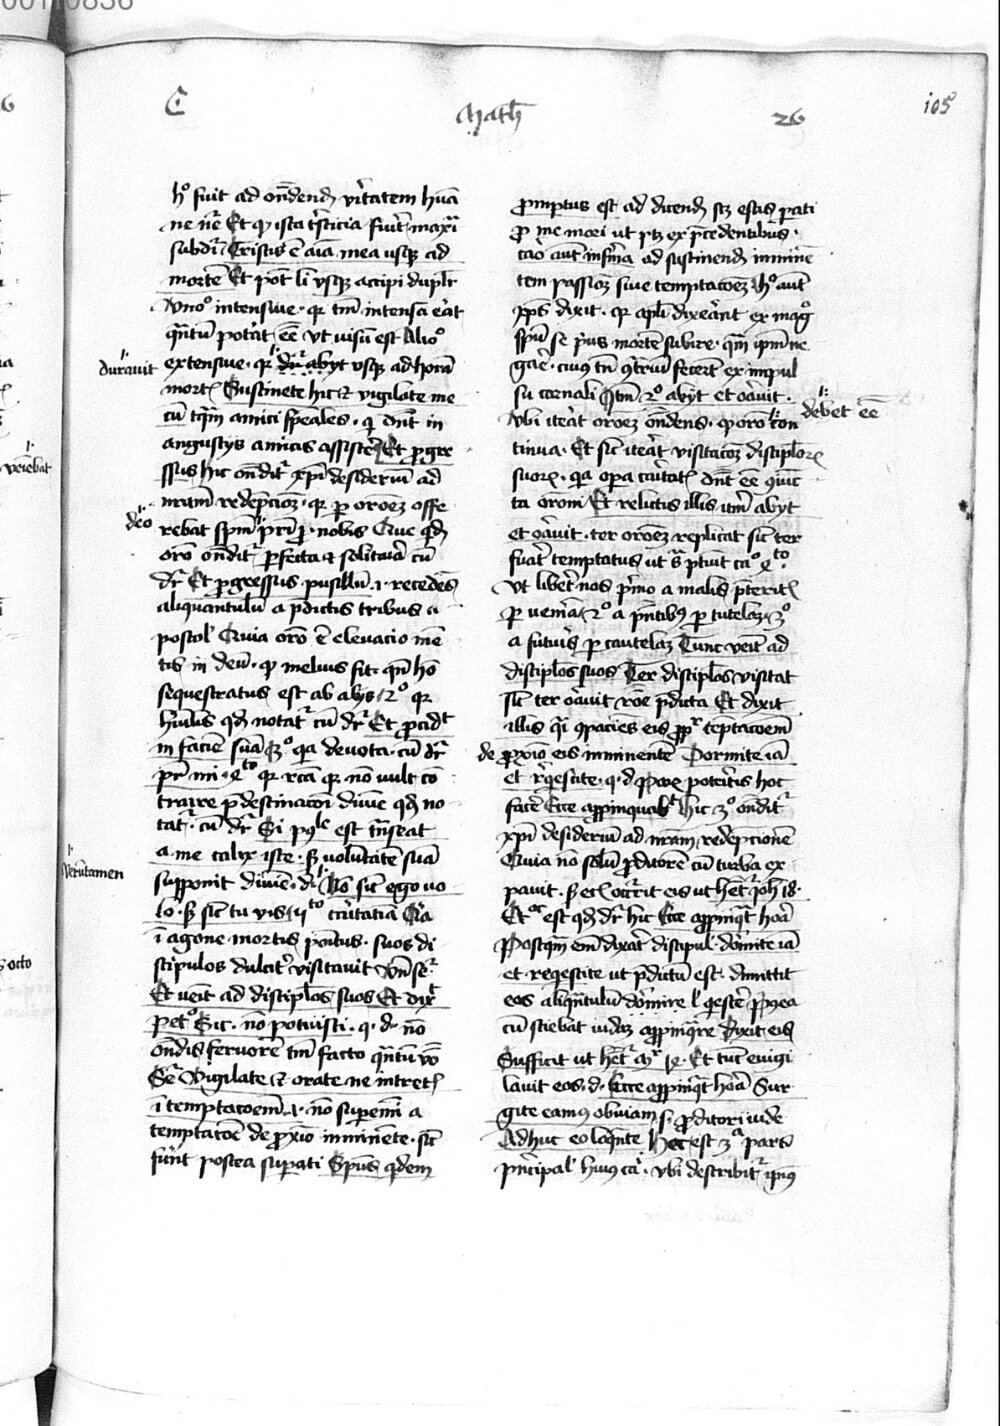 C Math 26 105
h° fuit ad ondend veritatem huma
ne nre Et q ista tristicia fuit maxi
subdit Tristis e aia mea usq ad
morte Et pot li usq accipi duplr
Uno° intensive · qr tm intensa erat
qntu poterat ee ut visu est Alio°
duravit
extensive · qr dr abyt usq ad hora
mort Sustinete hic et vigilate me
cu tqm amici speales · q dnt in
angustys amicis assistere Et progre
ssus hic ondit xpi desideriu ad
nram redepcioz · qr p oroez offe
deo
rebat spm pri p nobis Que qd
oro ondit perfecta et solitaria cu
dr Et progressus pusillu · i · recedes
aliquantulu a pdictis tribus a
postol Quia oro e elevacio me
tis in deu · q melius fit · qn ho
sequestratus est ab alys 2° qr
humilis qd notat cu dr Et procidit
in facie sua 3° qa devota · cu dr
pr mi · 4to qr recta qr no vult co
traire pdestinacoi divine qd no
tat · cu dr Si possibile est transeat
a me calix iste · s voluntate sua
Verutamen
supponit divine · dr No sic ego vo
lo · s sic tu vis
i agone mortis positus · suos di
scipulos dulcit visitavit Un seqr
Et venit ad disciplos suos Et dixit
petro Sic · no potuisti · q · d · no
ondis fervore tm facto qntu vo
Seqr Vigilate et orate ne intretis
i temptacoem · i · no superemi a
temptacoe de proxio iminente · sic
fuerut postea superati Spus qdem
promptus est ad dicend scz estis parati
pro me mori ut ptz ex precedentibus ·
caro aut infirma ad sustinend iminen
tem passioz sive temptacoez h° aut
xps dixit · qr apli dixerant ex magno
spu se prius morte subire · qm ipm ne
gare · cuius tn contrariu fecert ex impul
su carnali Itm 2° abyt et oravit ·
debet ee
Ubi iterat oroez ondens · q oro con
tinua · Et sic iterat visitacoz disciplor
suor · qa opa caritatis dnt ee coniunc
ta oroni Et relictis illis itm abyt
et oravit · ter oroez replicat sic ter
fuat temptatus ut s ptuit ca° 4to
Ut libet nos primo a malis preterit
p veniam 2° a pntibus p tutelam 3°
a futuris p cautelam Tunc venit ad
disciplos suos Ter disciplos visitat
sic ter oravit roe pdicta Et dixit
illis qi compaciens eis propter temptacoem
de proxio eis imminente Dormite ia
et reqescite · q · d · poteritis hoc
facere Ecce appinquabit hic 3° ondit
xpi desideriu ad nram redepcione
Quia no solu proditore cu turba ex
pavit · s et occurrit eis ut het Joh 18 ·
Et est qd dr hic Ecce appinqt hora
Postqm em dixat discipul · dormite ia
et reqestite ut pdictu est · dimittit
eos aliqntulu dormire l qestere Postea
cu sciebat iudaz appinqre dixit eis
Sufficit ut het mr 14 · Et tuc evigi
lavit eos · d · Ecce appinqt hora Sur
gite eamus obviam s · proditori iude
Adhuc eo loqnte Hec est 3a pars
principal huius ca · ubi describit ipius